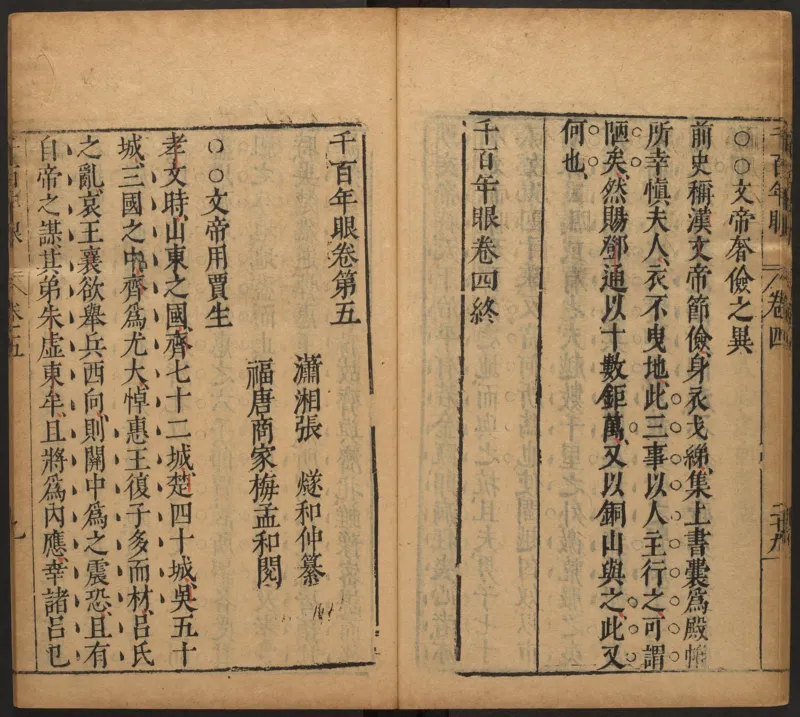 千百年眼 卷四
○○文帝奢儉之異
前史稱漢文帝節儉身衣弋綈集上書囊爲殿帷
所幸愼夫人衣不曳地此三事以人主行之可謂
陋矣然賜鄧通以十數鉅萬又以銅山與之此又
何也
千百年眼卷四終
千百年眼卷第五
瀟湘張 燧和仲纂
福唐商家梅孟和閱
○○文帝用賈生
孝文時山東之國齊七十二城楚四十城吳五十
城三國之中齊爲尤大悼惠王復子多而材呂氏
之亂哀王襄欲舉兵西向則關中爲之震恐且有
自帝之謀其弟朱虛東牟且將爲內應幸諸呂已
千百年眼 卷五